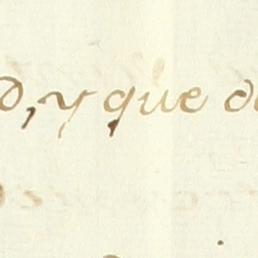 d, y que